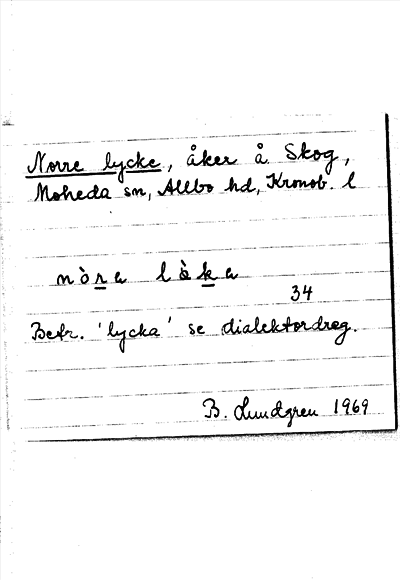 Norre lycke, åker å Skog,
Moheda sn, Allbo hd, Kronob. l
nòre lòke
34
Betr. 'lycka' se dialektordreg.
B. Lundgren 1969